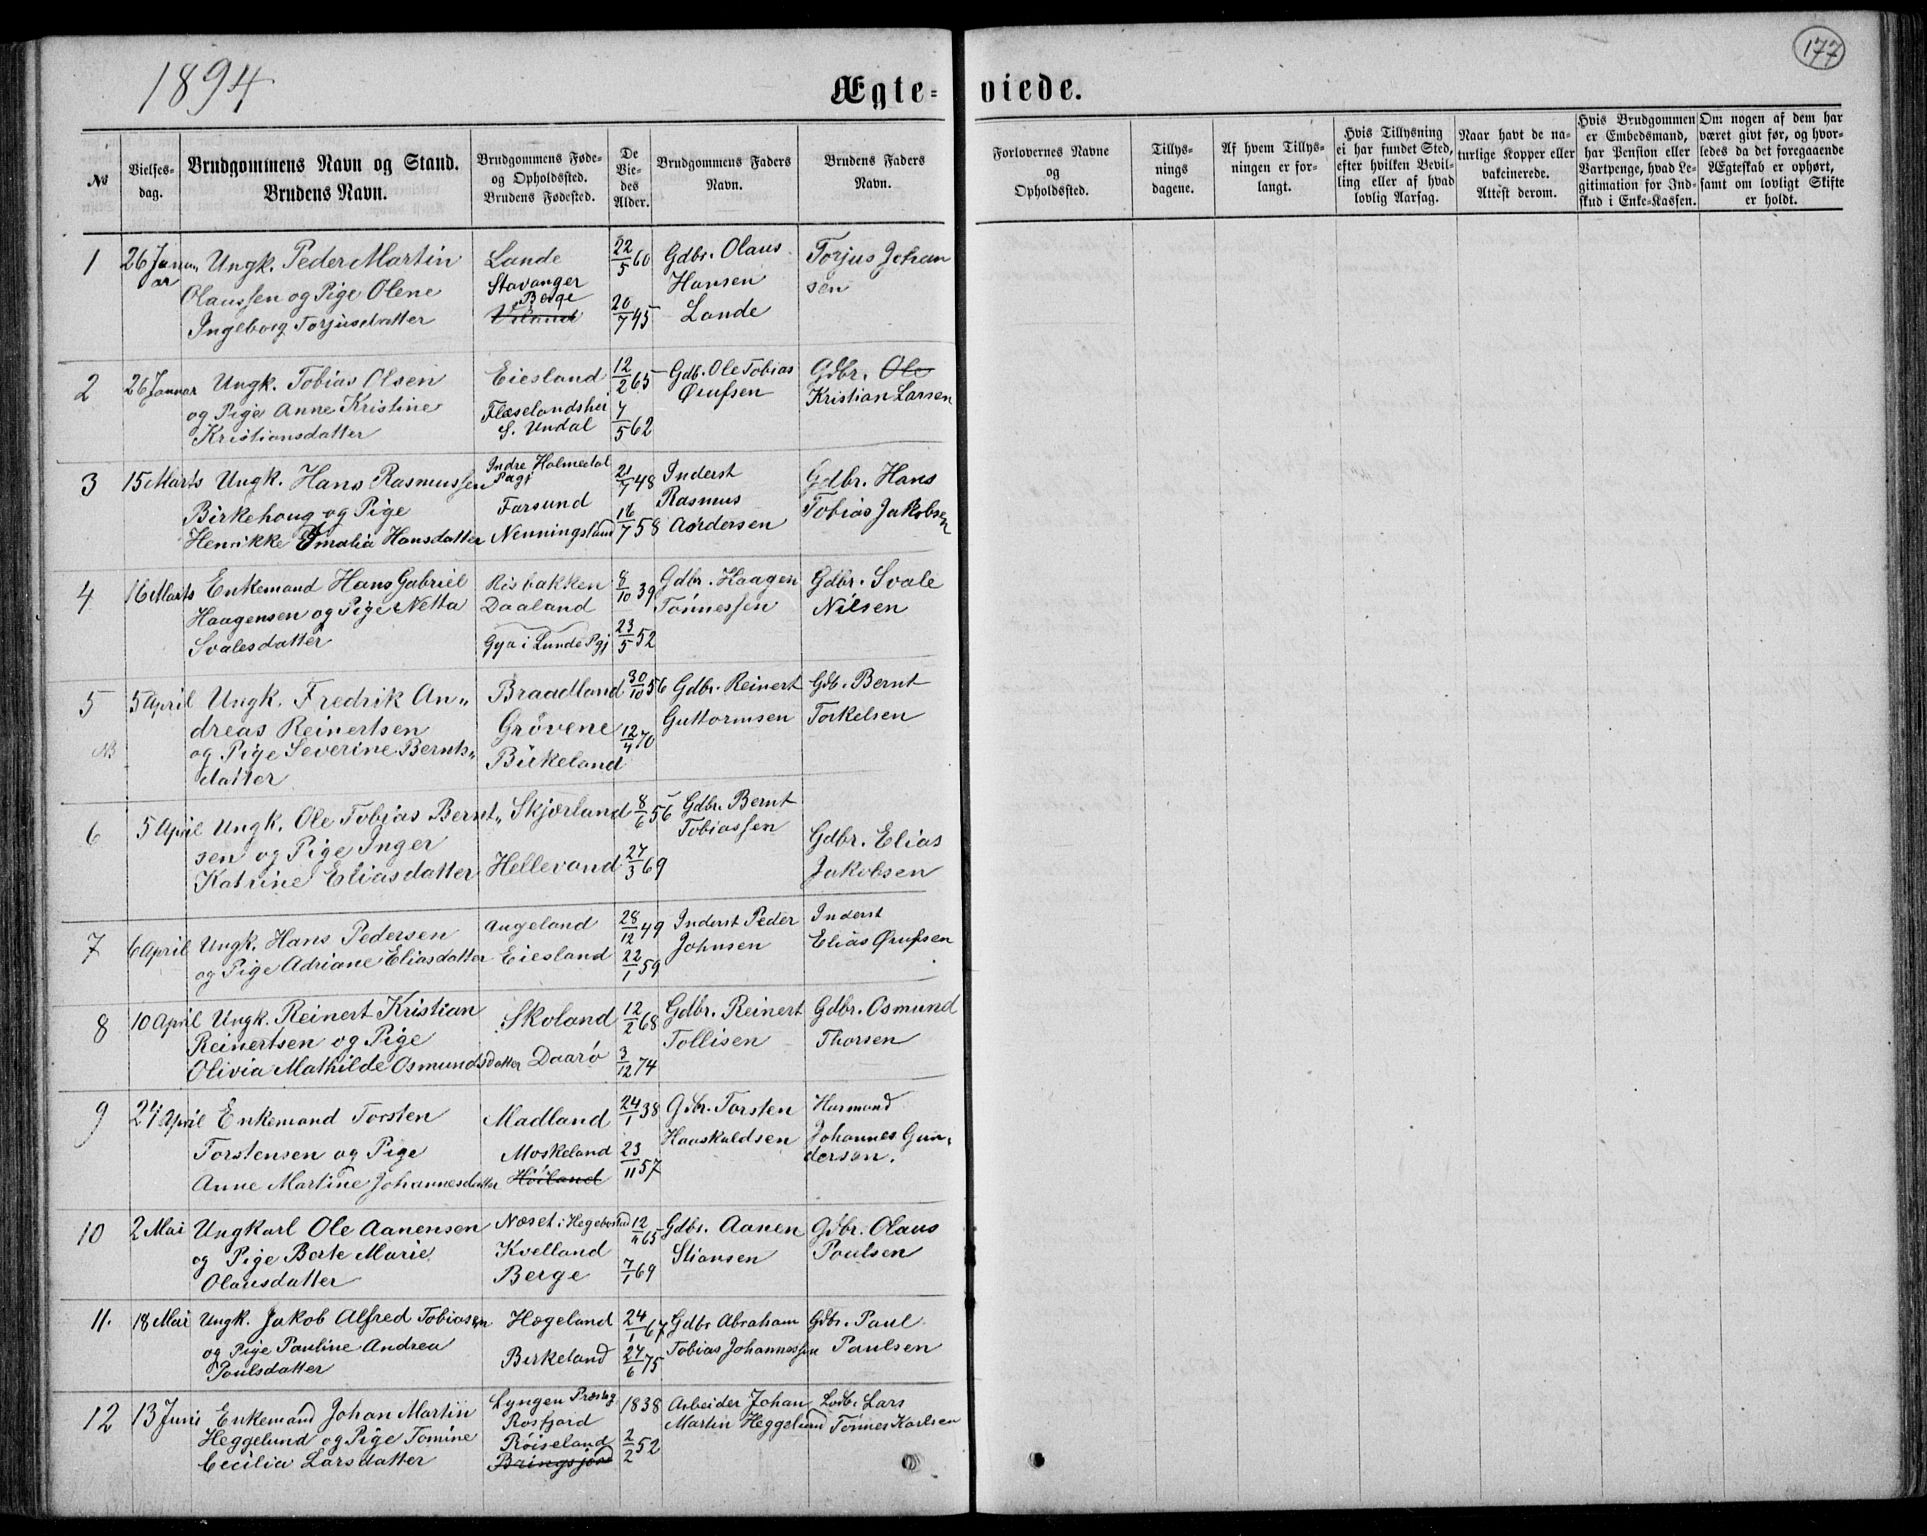 177
1894
Ægte- viede.
No
Vielses-
dag.
Brudgommens Navn og Stand.
Brudens Navn.
Brudgommens Føde-
og Opholdssted.
Brudens Fødested.
De
Vie-
des
Alder.
Brudgommens Faders
Navn.
Brudens Faders
Navn.
Forlovernes Navne
og
Opholdssted.
Tillys-
nings
dagene.
Af hvem Tillys-
ningen er for-
langt.
Hvis Tillysning
ei har fundet Sted,
efter hvilken Bevil-
ling eller af hvad
lovlig Aarsag.
Naar havt de na-
turlige Kopper eller
vakcinerede.
Attest derom.
Hvis Brudgommen
er Embedsmand,
har Pension eller
Vartpenge, hvad Le-
gitimation for Ind-
skud i Enke-Kassen.
Om nogen af dem har
været givt før, og hvor-
ledes da det foregaaende
Ægteskab er ophørt,
samt om lovligt Skifte
er holdt.
1 26 Janu
ar
Ungk. Peder Martin
Olaussen og Pige Olene
Ingeborg Torjusdatter
Lande
Stavanger
Berge
22/5 60
20/7 45
Gdbr. Olaus
Hansen
Lande
Torjus Johan
sen
2 26 Januar
Ungk. Tobias Olsen
og Pige Anne Kristine
Kristiansdatter
Eiesland
Flæselandshei
S. Undal
12/2 65
7/5 62
Gdb. Ole Tobias
Ørufsen
Gdbr. Ole
Kristian Larsen
3 15 Marts
Ungk. Hans Rasmussen
Birkehoug og Pige
Henrikke Amalia Hansdatter
Indre Holmedal
Pagj
Farsund
Nenningsland
21/7 48
16/7 58
Inderst
Rasmus
Andersen
Gdbr. Hans
Tobias Jakobsen
4 16 Marts
Enkemand Hans Gabriel
Haagensen og Pige Netta
Svalesdatter
Risbakken
Daaland
Gya i Lunde Pgj
8/10 39
23/5 52
Gdbr. Haagen
Tønnessen
Gdbr. Svale
Nilsen
5 5 April
NB
Ungk. Fredrik An„
dreas Reinertsen
og Pige Severine Bernts„
datter
Braadland
Grövene
Birkeland
30/10 56
12/4 70
Gdbr. Reinert
Guttormsen
Gdb. Bernt
Torkelsen
6 5 April
Ungk. Ole Tobias Bernt„
sen og Pige Inger
Katrine Eliasdatter
Skjærland
Hellevand
8/6 56
27/3 69
Gdbr. Bernt
Tobiassen
Gdbr. Elias
Jakobsen
7 6 April
Ungk. Hans Pedersen
og Pige Adriane Eliasdatter
Augeland
Eiesland
28/12 49
22/1 59
Inderst Peder
Johnsen
Inderst
Elias Ørufsen
8 10 April
Ungk. Reinert Kristian
Reinertsen og Pige
Olivia Mathilde Osmundsdatter
Skoland
Daarø
12/2 68
3/12 74
Gdbr. Reinert
Tollisen
Gdbr. Osmund
Thorsen
9 27 April
Enkemand Torsten
Torstensen og Pige
Anne Martine Johannesdatter
Madland
Moskeland
Höiland
24/1 38
23/11 57
Gdbr. Torsten
Haaskuldsen
Husmand
Johannes Gun„
dersen.
10 2 Mai
Ungkarl Ole Aanensen
og Pige Berte Marie
Olausdatter
Næset i Hegebostad
Kvelland
Berge
12/4 65
7/1 69
Gdbr. Aanen
Stiansen
Gdbr. Olaus
Poulsen
11. 18 Mai
Ungk. Jakob Alfred Tobiasen
og Pige Pauline Andrea
Poulsdatter
Hægeland
Birkeland
24/1 67
24/6 75
Gdbr Abraham
Tobias Johannessen
Gdbr. Paul
Paulsen
12 13 Juni
Enkemand Johan Martin
Heggelund og Pige Tomine
Cecilia Larsdatter
Lyngen Præstg
Rosfjord
Röiseland
Bringsjord
1838
2/2 52
Arbeider Johan
Martin Heggelund
Lods. Lars
Tönnes Karlsen